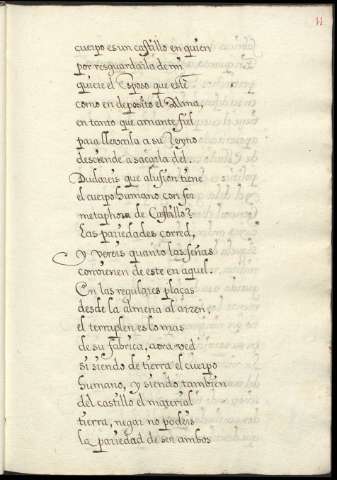 11
cuerpo es un castillo en quien
por resguardarla de mi
quiere el Esposo que estè
como en deposito el Alma,
en tanto que amante fiel
para llevarla a su Reyno
desciende a sacarla del.
Dudareis que alusion tiene
el cuerpo humano con ser
metaphora de Castillo?
Las pariedades corred,
y vereis quanto las señas
convienen de este en aquel.
En las regulares plaças
desde la almena al
el terraplen es lo mas
de su fabrica, aora ved
si siendo de tierra el cuerpo
humano, y siendo tambien
del castillo el material
tierra, negar no podeis
la pariedad de ser ambos